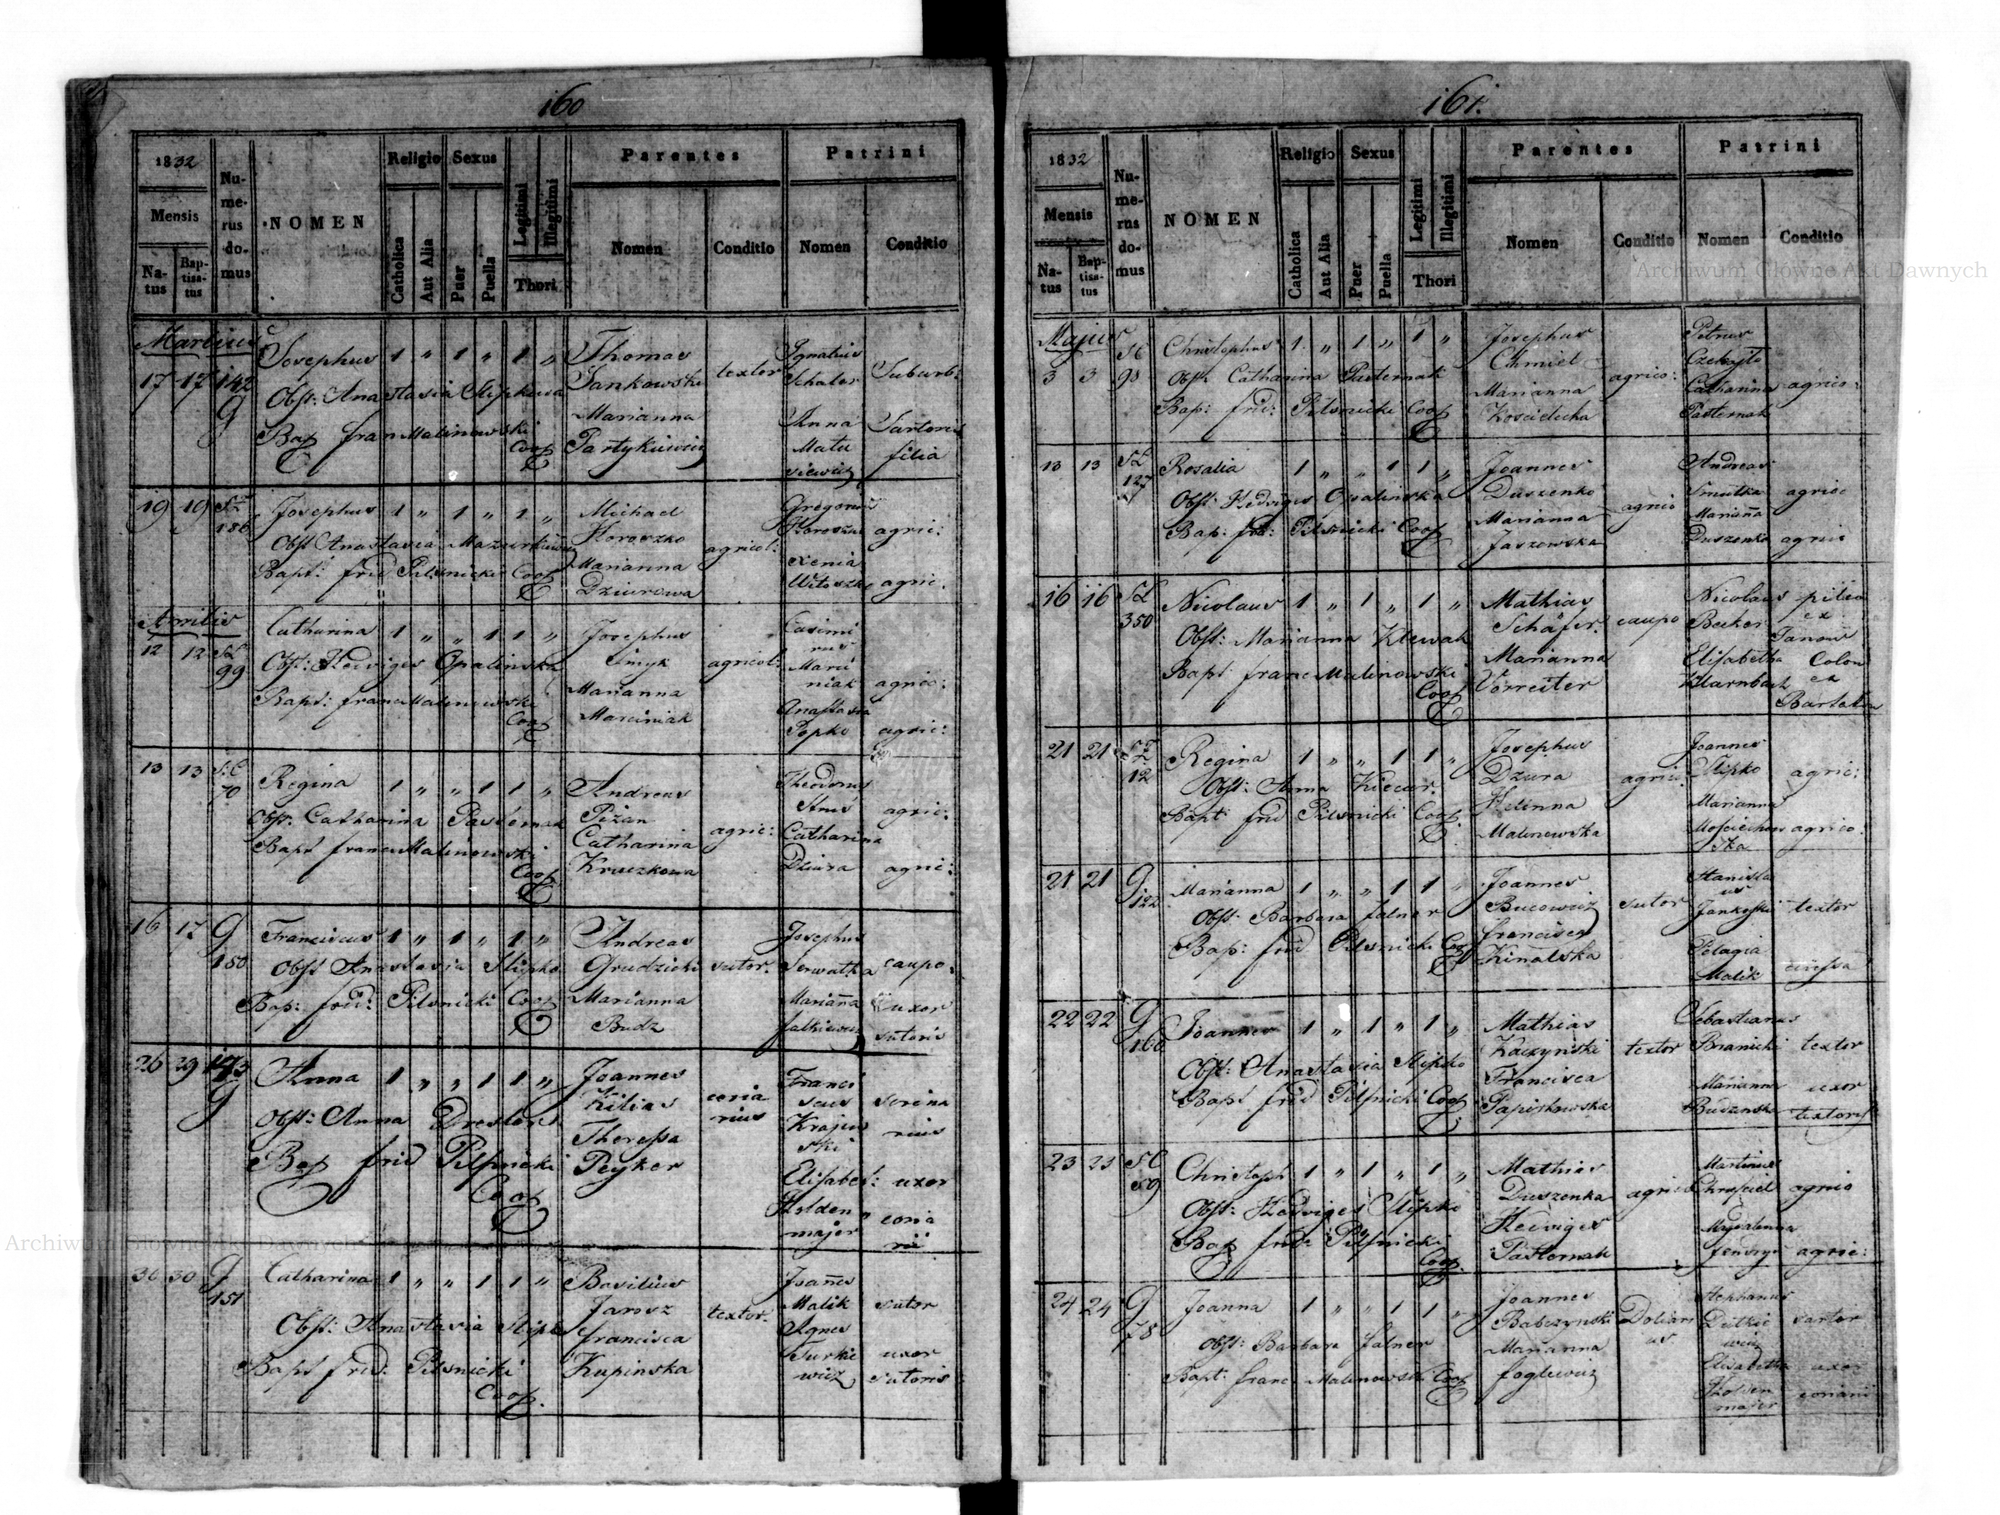 160
1832
Mensis
Na-
tus
Bap-
tisa-
tus
Nu-
me-
rus
do-
mus
NOMEN
Religio
Catholica
Aut Alia
Sexus
Puer
Puella
Legitimi
Illegitimi
Thori
Parentes
Nomen
Conditio
Patrini
Nomen
Conditio
Martius
17 17 142 Josephus 1 " 1 " 1 " Thomas Ignatius
G Jankowski textor Schaler Suburb:
Obst: Anastasia Slipkowa
Marianna Anna Sartoris
Bap fran Malinowski Coop Partykiewicz filia
19 19 186 Josephus 1 " 1 " 1 " Michael Gregorius
Obst Anastasia Horoszko agricol: agric:
Bapt: frid Pilsnicki Coop Marianna Xenia
Dziurowa agric:
Aprilis
12 12 99 Catharina 1 " " 1 1 " Josephus Casimi
rus
Obst: Hedwiges Opalinska Smyk agricol: Marci
niak agric:
Bapt: franc Malinowski Marianna
Coop Marciniak Anastasia
Popko agric:
13 13 70 Regina 1 " " 1 1 " Andreas Theodorus
Obst: Catharina Pasternak Pizan agric:
Catharina agric: Catharina
Bapt franc Malinowski Coop Kruczkowa Dziura agric:
16 17 G 150 Franciscus 1 " 1 " 1 " Andreas Josephus
Obst Anastasia Slipko Grudzicki sutor: Serwatka caupo:
Bap: frid: Pilsnicki Coop Marianna Marianna uxor
Budz sutoris
26 29 173 G Anna 1 " " 1 1 " Joannes coria
rius Franci
scus
Obst: Anna Drestler Kilias Krajew
ski
Theressa
Bap frid Pilsnicki Coop Peyker Elisabet: uxor
Holden
majer coria
rii
30 30 G 151 Catharina 1 " " 1 1 " Basilius Joanes
Jarosz textor. Malik sutor
Obst: Anastasia Slipko francisca Agnes
Bapt frid: Pilsnicki Coop. Kupinska Turkie
wicz uxor
sutoris
161.
1832
Mensis
Na-
tus
Bap-
tisa-
tus
Nu-
me-
rus
do-
mus
NOMEN
Religio
Catholica
Aut Alia
Sexus
Puer
Puella
Legitimi
Illegitimi
Thori
Parentes
Nomen
Conditio
Patrini
Nomen
Conditio
Majus
3 3 98 Christophus 1 " 1 " 1 " Josephus Petrus
Obst: Catharina Pasternak Chmiel agrico:
Marianna Catharina agrico:
Bap: frid: Pilsnicki Coop Pasternak
13 13 127 Rosalia 1 " " 1 1 " Joannes Andreas
Obst: Hedwiges Opalinska Duszenko agric Smutka agric
Bap: frid: Pilsnicki Coop Marianna Marianna
Jaszewska Duszenko agric
16 16 350 Nicolaus 1 " 1 " 1 " Mathias Nicolaus
Obst: Marianna Klewak Schäfer caupo Becker ex
Janow
Bapt franc Malinowski Coop Marianna Elisabetha Colon
ex
21 21 12 Regina 1 " " 1 1 " Josephus Joannes
Obst: Anna Dziura agric: Slipko agric:
Bapt frid Pilsnicki Coop. Helenna Marianna
Malinowska Mosciechow
ska agrico:
21 21 G 122 Marianna 1 " " 1 1 " Joannes Stanisla
us
Obst: Barbara falner Bucowicz sutor Jankoski textor
Bap: frid Pilsnicki Coop francisca Pelagia
Malik
22 22 G 160 Joannes 1 " 1 " 1 " Mathias Sebastianus
Obst: Anastasia Slipko Kaczynski textor Branicki textor
Bapt frid Pilsnicki Coop Francisca Marianna uxor
textoris
23 23 59 Christoph 1 " 1 " 1 " Mathias Martinus
Obst: Hedwiges Slipko Duszenka agric agric
Bap frid: Pilsnicki Coop. Hedwiges Magdalenna
Pasternak agric:
24 24 G 78 Joanna 1 " " 1 1 " Joannes Stephanus
Obst: Barbara falner Babczynski Doliari
us sartor
Bapt: franc Malinowski Coop Marianna Elisabetha uxor
foglewicz Holden
majer
Archiwum Główne Akt Dawnych
Archiwum Główne Akt Dawnych